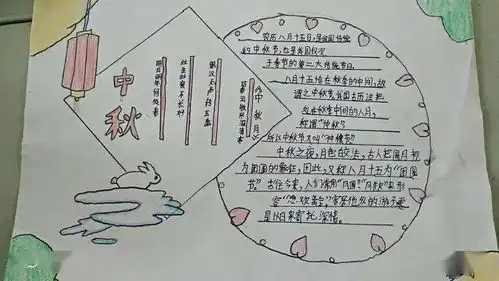 中秋
《中秋月》
暮云收尽溢清寒
银汉无声转玉盘
此生此夜不长好
明月明年何处看
农历八月十五日,是我国传统
的中秋节,也是我国仅次
于春节的第二大传统节日。
八月十五恰在秋季的中间,故
谓之中秋节。我国古历法把
处在秋季中间的八月,
称谓"仲秋",
所以中秋节又叫"仲秋节"
中秋之夜,月色皎洁,古人把圆月视
为团圆的象征,因此,又称八月十五为"团圆
节"。古往今来,人们常用"月圆"、"月缺"来形
容"悲欢离合",客居他乡的游子,更
是以月来寄托深情。